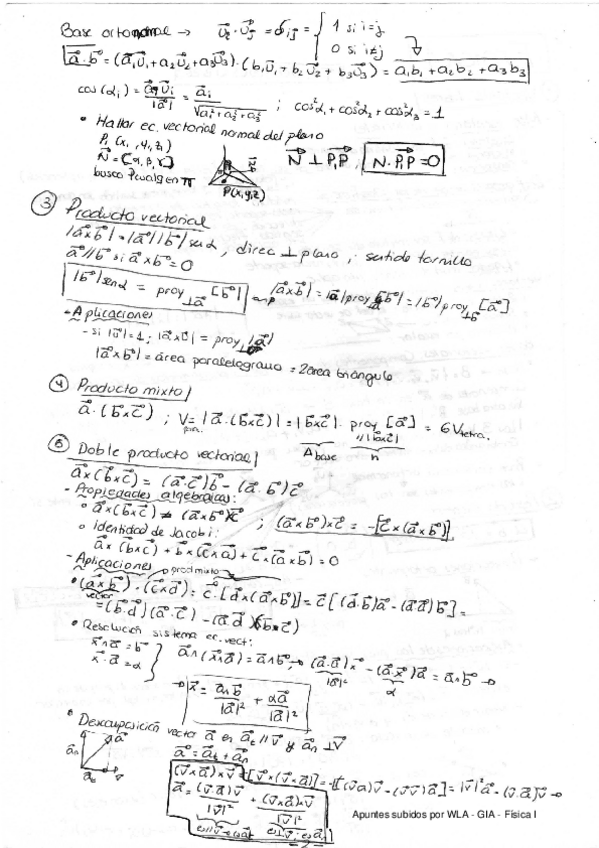 Base ortonormal → u⃗ᵢ·u⃗ⱼ = δᵢⱼ = { 1 si i=j
0 si i≠j
a⃗·b⃗ = (a₁u⃗₁ + a₂u⃗₂ + a₃u⃗₃)·(b₁u⃗₁ + b₂u⃗₂ + b₃u⃗₃) = a₁b₁ + a₂b₂ + a₃b₃
cos(αᵢ) = a⃗u⃗ᵢ/|a⃗| = aᵢ/√(a₁²+a₂²+a₃²) ; cos²α₁ + cos²α₂ + cos²α₃ = 1
• Hallar ec. vectorial normal del plano
P₁ (x₁, y₁, z₁)
N⃗ = (α, β, γ)
busco P cualq en π
P(x,y,z)
N⃗ ⊥ P₁P⃗, N⃗·P₁P⃗ = 0
③ Producto vectorial
|a⃗×b⃗| = |a⃗||b⃗| senα, direc ⊥ plano ; sentido tornillo
a⃗//b⃗ si a⃗×b⃗ = 0
|b⃗|senα = proy⊥a⃗ [b⃗] → |a⃗×b⃗| = |a⃗| proy⊥a⃗ [b⃗] = |b⃗| proy⊥b⃗ [a⃗]
- Aplicaciones
- si |u⃗| = 1 ; |a⃗×u⃗| = proy⊥ |a⃗|
|a⃗×b⃗| = área paralelogramo = 2área triángulo
④ Producto mixto
a⃗·(b⃗×c⃗) ; V = |a⃗·(b⃗×c⃗)| = |b⃗×c⃗|· proy//|b⃗×c⃗| [a⃗] = 6V tetra.
A base h
⑤ Doble producto vectorial
a⃗×(b⃗×c⃗) = (a⃗·c⃗)b⃗ - (a⃗·b⃗)c⃗
- Propiedades algebraicas:
o a⃗×(b⃗×c⃗) ≠ (a⃗×b⃗)×c⃗ ; (a⃗×b⃗)×c⃗ = -[c⃗×(a⃗×b⃗)]
o identidad de Jacobi:
a⃗×(b⃗×c⃗) + b⃗×(c⃗×a⃗) + c⃗×(a⃗×b⃗) = 0
- Aplicaciones → prod mixto
• (a⃗×b⃗)·(c⃗×d⃗) = c⃗·[d⃗×(a⃗×b⃗)] = c⃗[(d⃗·b⃗)a⃗ - (d⃗·a⃗)b⃗] =
vector
= (b⃗·d⃗)(a⃗·c⃗) - (a⃗·d⃗)(b⃗·c⃗)
• Resolución sistema ec. vect:
x⃗∧a⃗ = b⃗
x⃗·a⃗ = α
a⃗∧(x⃗∧a⃗) = a⃗∧b⃗ → (a⃗·a⃗)x⃗ - (a⃗·x⃗)a⃗ = a⃗∧b⃗ →
|a⃗|² α
→ x⃗ = a⃗∧b⃗/|a⃗|² + αa⃗/|a⃗|²
• Descomposición vector a⃗ en a⃗ₜ // v⃗ y a⃗ₙ ⊥ v⃗
a⃗ = a⃗ₜ + a⃗ₙ
(v⃗×a⃗)×v⃗ = -[v⃗×(v⃗×a⃗)] = -[(v⃗a⃗)v⃗ - (v⃗v⃗)a⃗] = |v⃗|²a⃗ - (v⃗·a⃗)v⃗ →
a⃗ = (v⃗·a⃗)v⃗/|v⃗|² + (v⃗×a⃗)×v⃗/|v⃗|²
Apuntes subidos por WLA - GIA - Física I